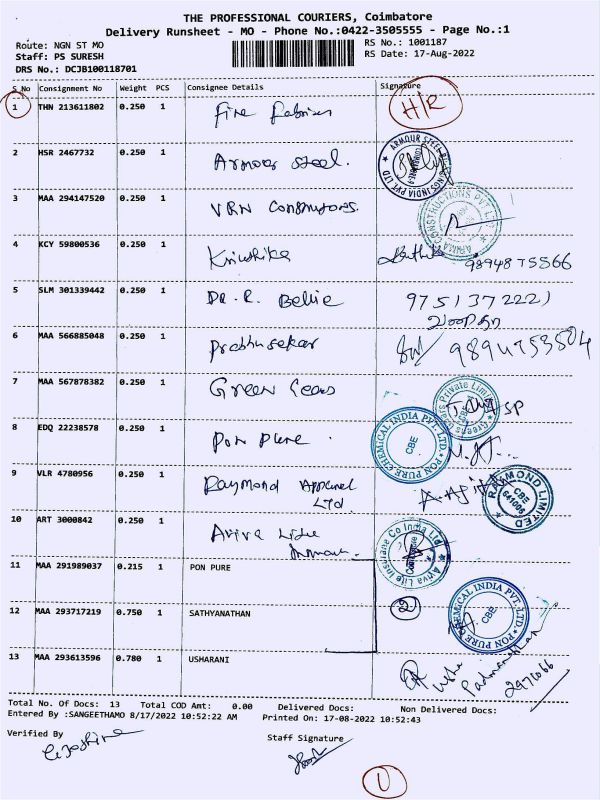 THE PROFESSIONAL COURIERS, Coimbatore
Delivery Runsheet - MO - Phone No.:0422-3505555 - Page No.:1
Route: NGN ST MO
RS No.: 1001187
Staff: PS SURESH
RS Date: 17-Aug-2022
DRS No.: DCJB100118701
S No Consignment No Weight PCS Consignee Details Signature
1 THN 213611802 0.250 1 Fire Fabrics H/R
2 HSR 2467732 0.250 1 Armour Steel.
3 MAA 294147520 0.250 1 VRN
4 KCY 59800536 0.250 1 Krishika 9894875566
5 SLM 301339442 0.250 1 DR. R. Bellie 9751372221
6 MAA 566885048 0.250 1 Prabhusekar 9894753504
7 MAA 567878382 0.250 1 Green Gears
8 EDQ 22238578 0.250 1 Pon Pure.
PON PURE CHEMICAL INDIA PVT. LTD. CBE
9 VLR 4780956 0.250 1 Raymond Apparel
Ltd
RAYMOND LIMITED CBE
10 ART 3000842 0.250 1 Aviva Life
11 MAA 291989037 0.215 1 PON PURE
2
12 MAA 293717219 0.750 1 SATHYANATHAN
PON PURE CHEMICAL INDIA PVT. LTD. CBE
13 MAA 293613596 0.780 1 USHARANI
Usha
Padmanabhan
2971066
Total No. Of Docs: 13 Total COD Amt: 0.00 Delivered Docs: Non Delivered Docs:
Entered By :SANGEETHAMO 8/17/2022 10:52:22 AM Printed On: 17-08-2022 10:52:43
Verified By Staff Signature